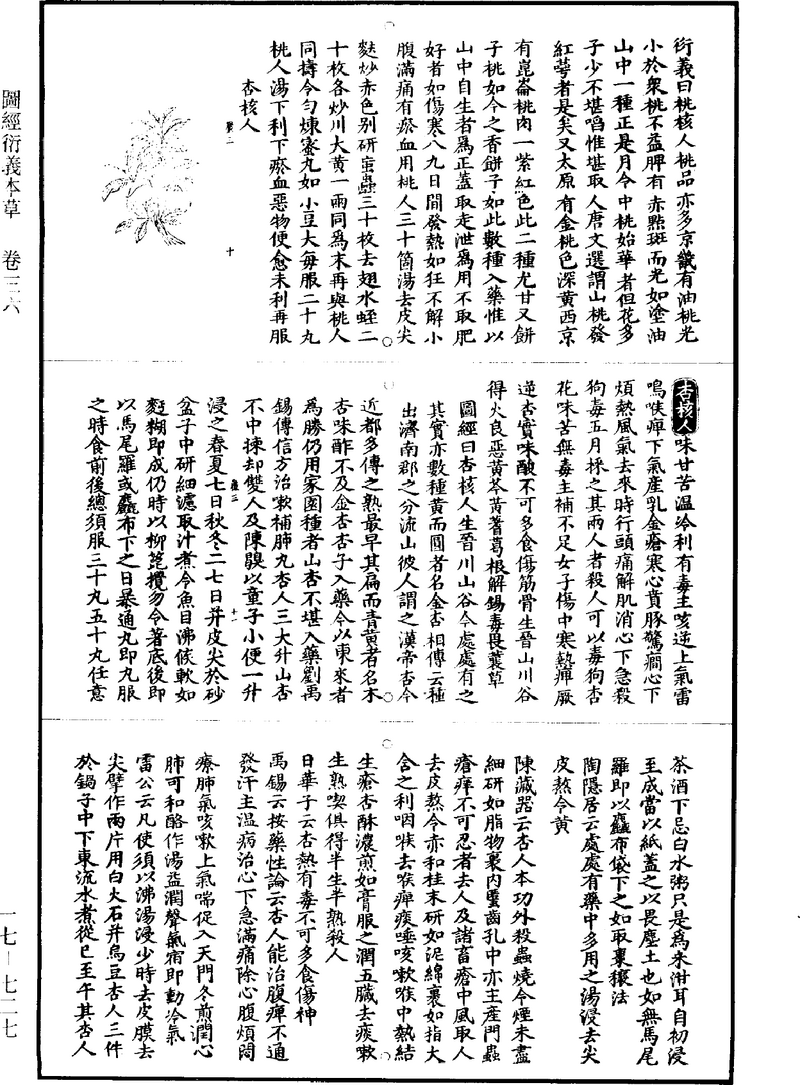 圖經衍義本草　卷三六
一七－七二七
衍義曰桃核人桃品亦多京畿有油桃光
小於衆桃不益脾有赤點斑而光如塗油
山中一種正是月令中桃始華者但花多
子少不堪啗惟堪取人唐文選謂山桃發
紅萼者是矣又太原有金桃色深黃西京
有崑崙桃肉一紫紅色此二種尤甘又餅
子桃如今之香餅子如此數種入藥惟以
山中自生者爲正蓋取走泄爲用不取肥
好者如傷寒八九日間發熱如狂不解小
腹滿痛有瘀血用桃人三十箇湯去皮尖
麩炒赤色別研䖟蟲三十枚去翅水蛭二
十枚各炒川大黃一兩同爲末再與桃人
同擣令勻煉蜜丸如小豆大每服二十丸
桃人湯下利下瘀血惡物便愈未利再服
杏核人
十
杏核人味甘苦溫冷利有毒主咳逆上氣雷
鳴喉痺下氣產乳金瘡寒心賁豚驚癎心下
煩熱風氣去來時行頭痛解肌消心下急殺
狗毒五月採之其兩人者殺人可以毒狗杏
花味苦無毒主補不足女子傷中寒熱痺厥
逆杏實味酸不可多食傷筋骨生晉山川谷
得火良惡黃芩黃耆葛根解錫毒畏蘘草
圖經曰杏核人生晉川山谷今處處有之
其實亦數種黃而圓者名金杏相傳云種
出濟南郡之分流山彼人謂之漢帝杏今
近都多傳之熟最早其扁而青黃者名木
杏味酢不及金杏杏子入藥今以東來者
爲勝仍用家園種者山杏不堪入藥劉禹
錫傳信方治嗽補肺丸杏人三大升山杏
不中揀却雙人及陳臭以童子小便一升
十一
浸之春夏七日秋冬二七日并皮尖於砂
盆子中研細濾取汁煮令魚目沸候軟如
麪糊即成仍時以柳箆攪勿令著底後即
以馬尾羅或麤布下之日暴通丸即丸服
之時食前後總須服三十丸五十丸任意
茶酒下忌白水粥只是爲米泔耳自初浸
至成當以紙蓋之以畏塵土也如無馬尾
羅即以麤布袋下之如取棗穰法
陶隱居云處處有藥中多用之湯浸去尖
皮熬令黃
陳藏器云杏人本功外殺蟲燒令煙未盡
細研如脂物裹內䘌齒孔中亦主產門蟲
瘡痒不可忍者去人及諸畜瘡中風取人
去皮熬令赤和桂末研如泥綿裹如指大
含之利咽喉去喉痺痰唾咳嗽喉中熱結
生瘡杏酥濃煎如膏服之潤五臟去痰嗽
生熟喫俱得半生半熟殺人
日華子云杏熱有毒不可多食傷神
禹錫云按藥性論云杏人能治腹痺不通
發汗主溫病治心下急滿痛除心腹煩悶
療肺氣咳嗽上氣喘促入天門冬煎潤心
肺可和酪作湯益潤聲氣宿即動冷氣
雷公云凡使須以沸湯浸少時去皮膜去
尖擘作兩片用白火石并烏豆杏人三件
於鍋子中下東流水煮從巳至午其杏人